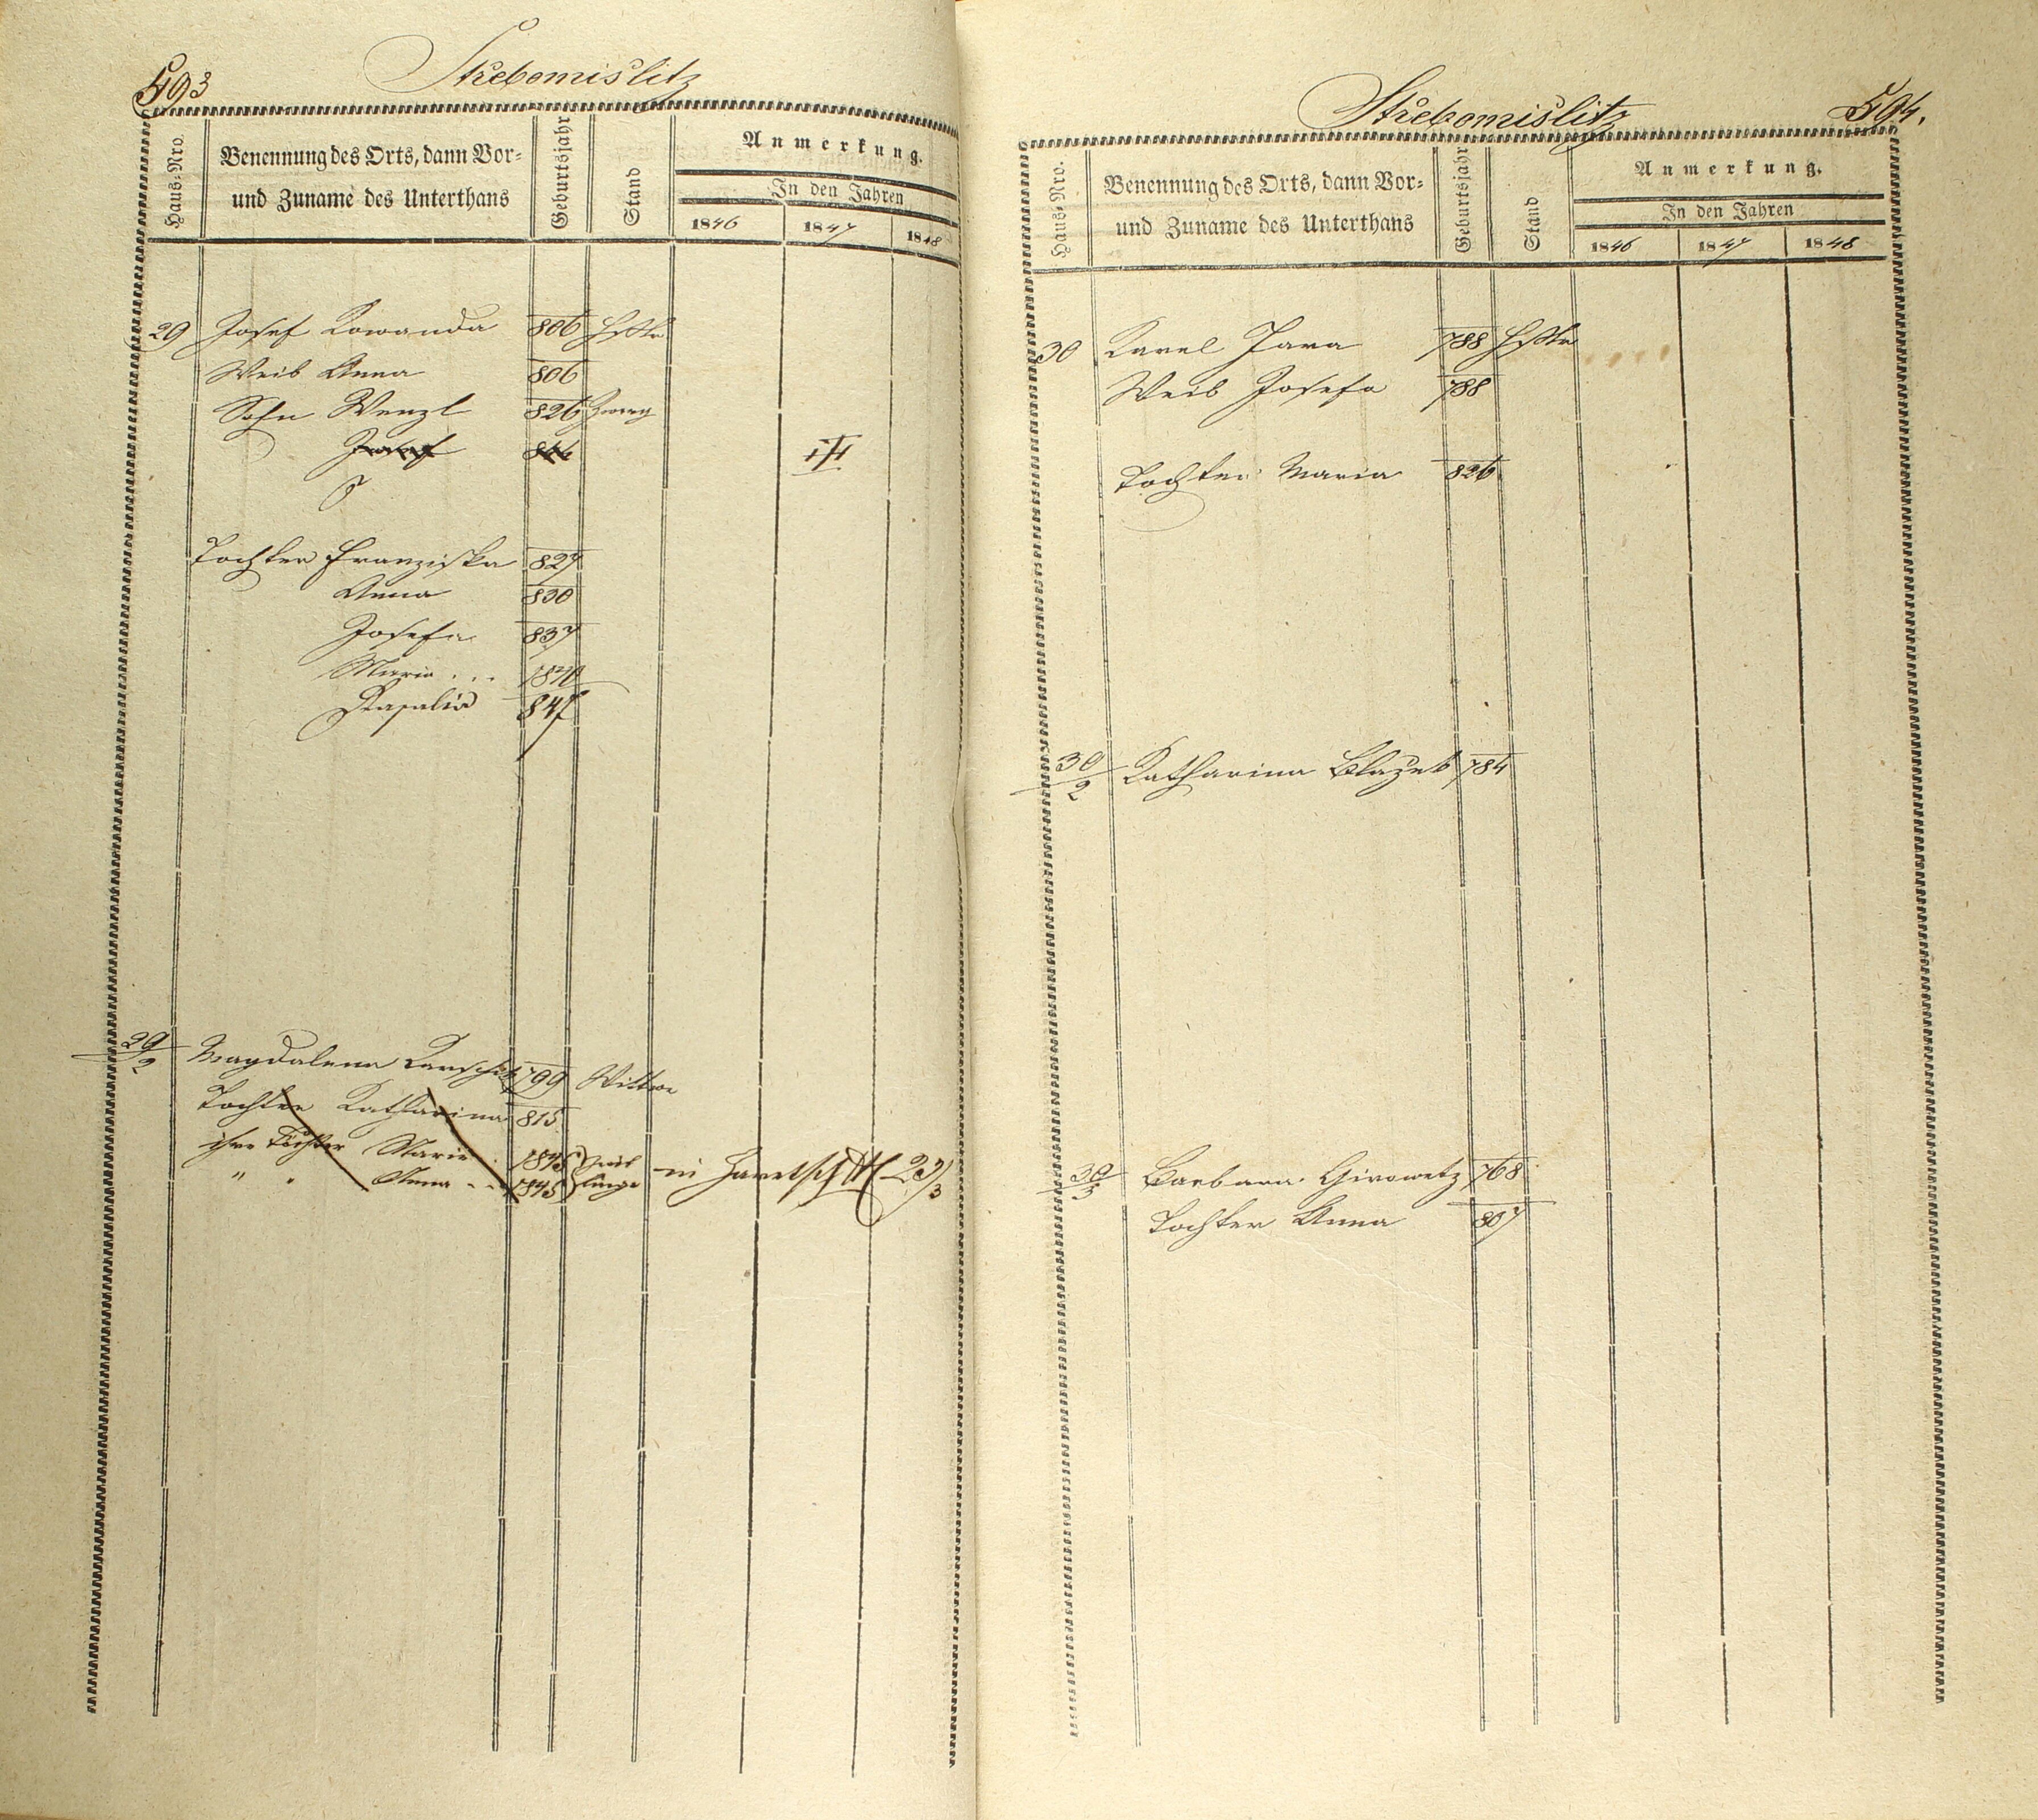 593
Střebomislitz
Haus-Nro.
Benennung des Orts, dann Vor-
und Zuname des Unterthans
Geburtsjahr
Stand
Anmerkung.
In den Jahren
1846 1847 1848
29 Josef Kowanda 806
Weib Anna 806
Sohn Wenzl 826 Zwerg
Josef 844
Tochter Franziska 827
Anna 830
Josefa 837
Maria . . . 1840
Rosalia 847
29/2 Magdalena 799 Wittwe
Tochter Katharina 815
ihre Töchter Maria 1845
" " Anna - - 1845 in 23/3
594.
Střebomislitz
Haus-Nro.
Benennung des Orts, dann Vor-
und Zuname des Unterthans
Geburtsjahr
Stand
Anmerkung.
In den Jahren
1846 1847 1848
30 Karel Jara 788
Weib Josefa 788
Tochter Maria 826
30/2 Katharina Blažek 784
30/3 Barbara Girowetz 768
Tochter Anna 807